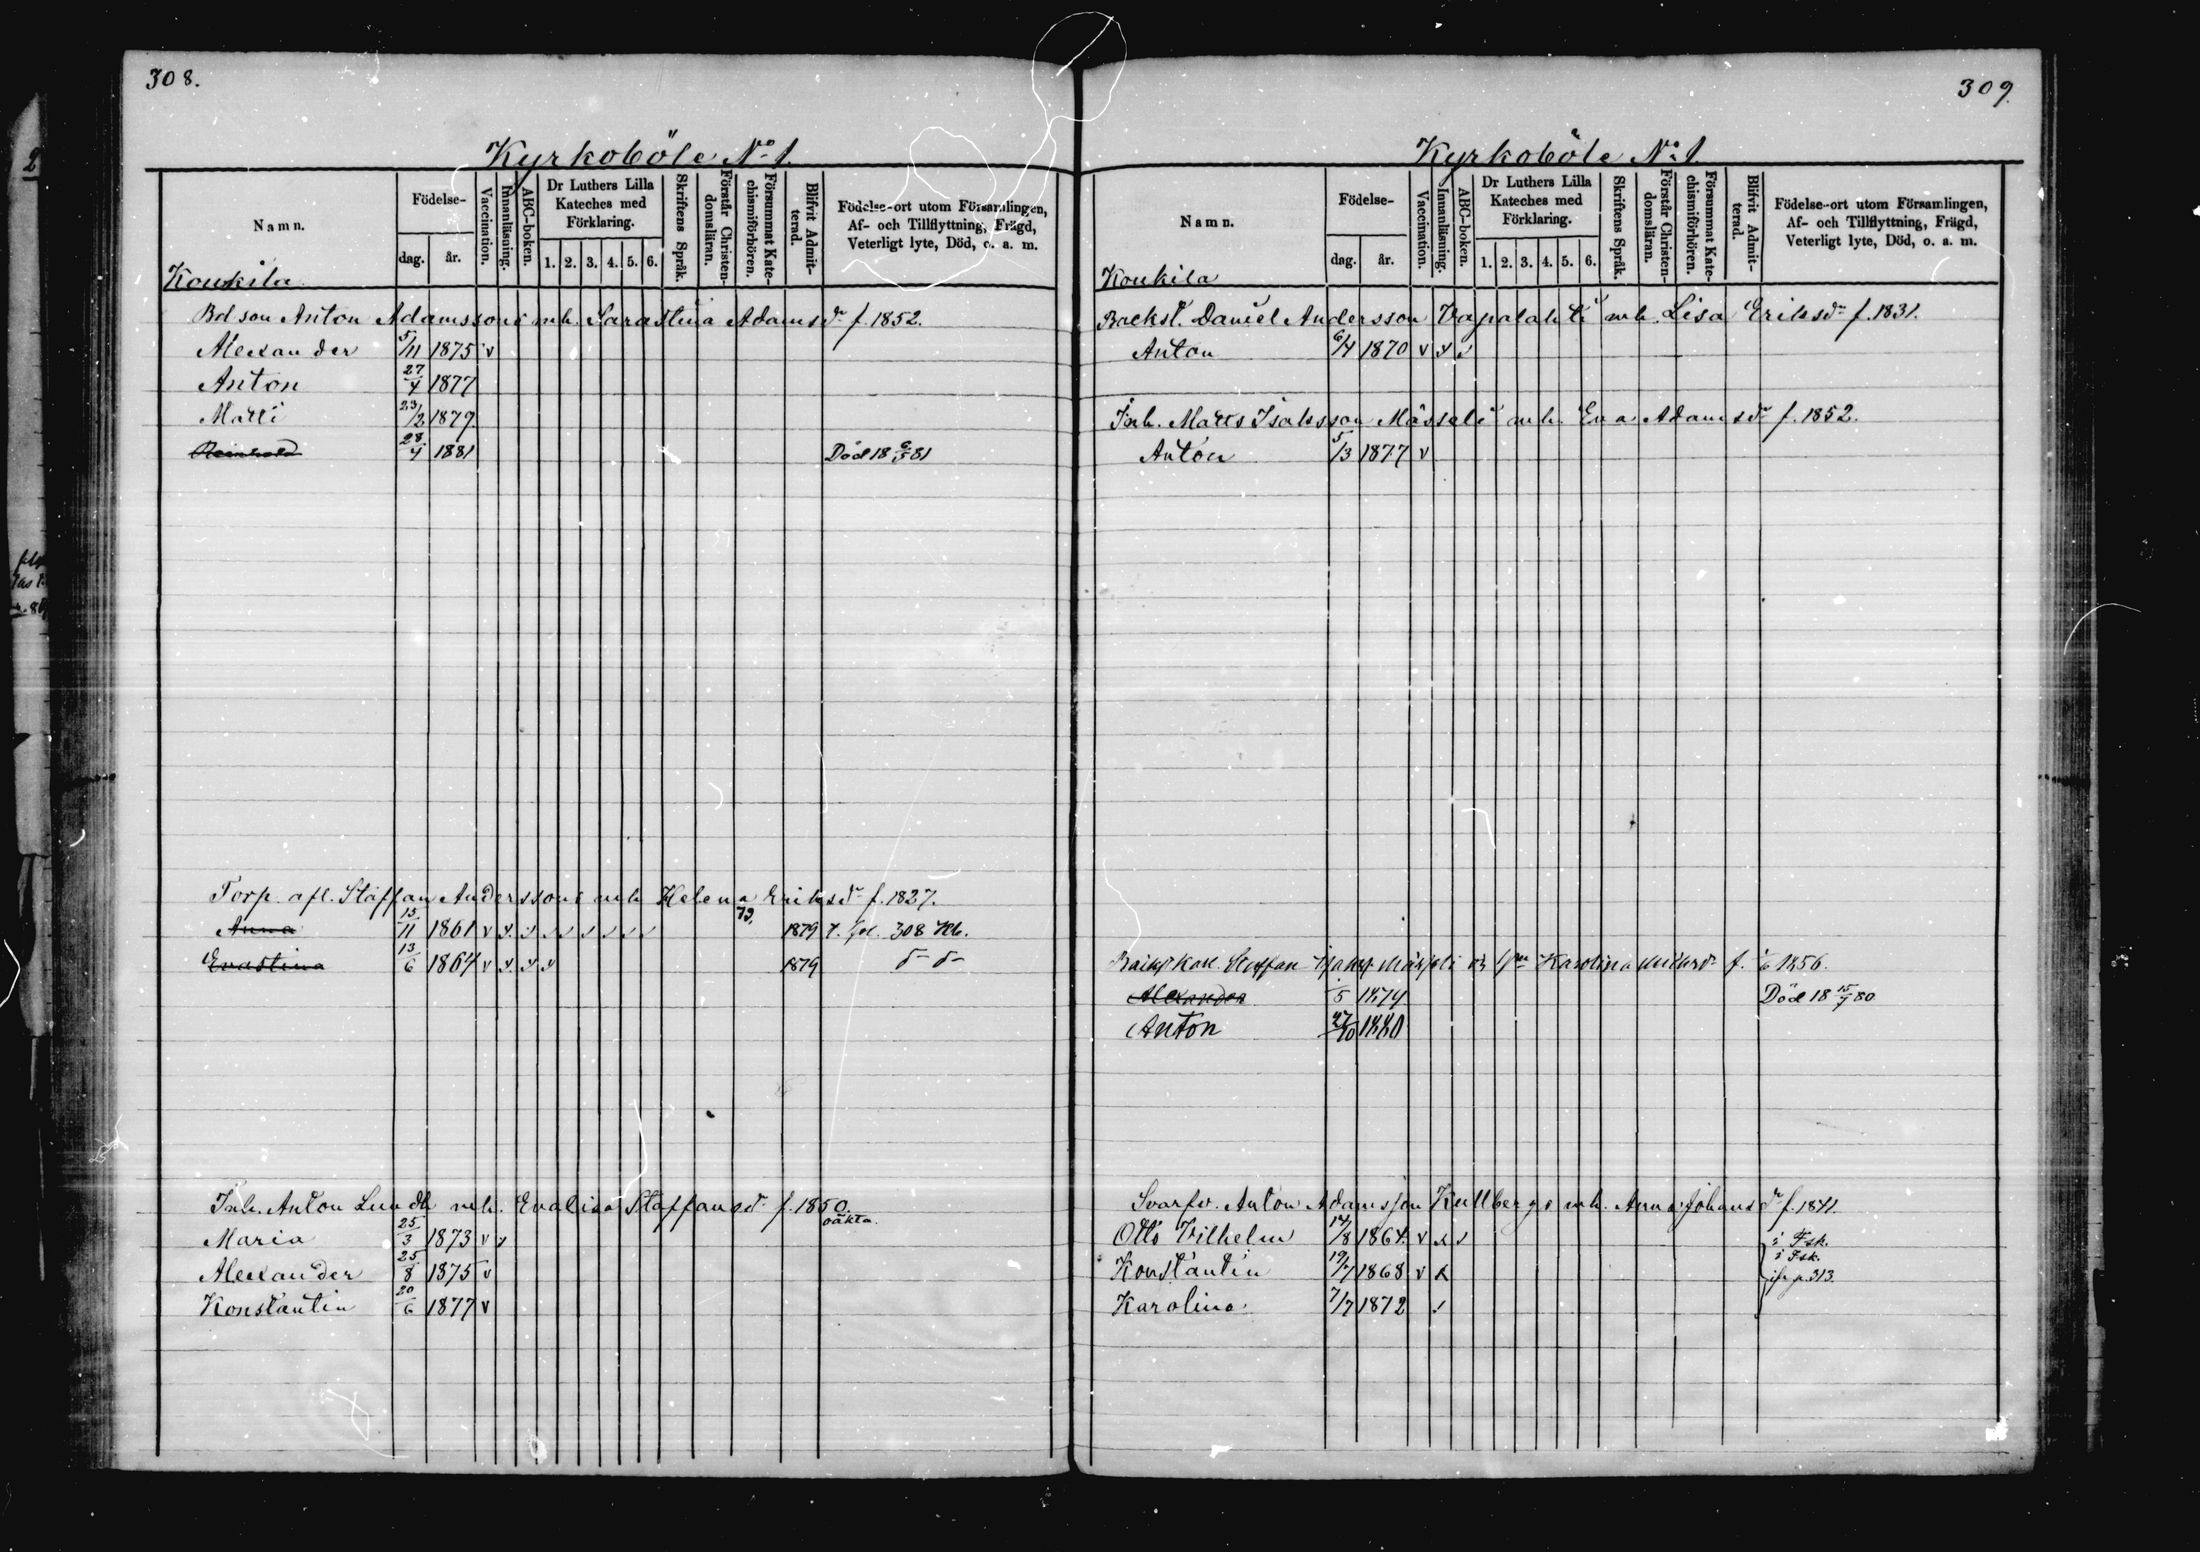 308.
Kyrkoböle No 1.
Namn.
Födelse-
dag.
år.
Vaccination.
Innanläsning.
ABC-boken.
Dr Luthers Lilla
Kateches med
Förklaring.
1. 2. 3. 4. 5. 6.
Skriftens Språk.
Förstår Christen-
domsläran.
Försummat Kate-
chismiförhören.
Blifvit Admit-
terad.
Födelse-ort utom Församlingen,
Af- och Tillflyttning, Frägd,
Veterligt lyte, Död, o. a. m.
Koukila
Bdson Anton Adamssons mh. Sarastina Adamsdr f. 1852.
Alexander 5/11 1875 v
Anton 27/4 1877
Matti 23/2 1879
Reinhold 28/4 1881 Död 18 6/5 81
Torp. afl. Staffan Anderssons mh Helena Eriksdr f. 1827.
Anna 15/11 1861 v 79. 1879 t. fol. 308 Hb.
Evastina 13/6 1864 v 1879
Inh. Anton Lundh mh. Evalisa Staffansdr f. 1850.
oäkta.
Maria 25/3 1873 v
Alexander 25/8 1875 v
Konstantin 20/6 1877 v
309.
Kyrkoböle No 1.
Namn.
Födelse-
dag.
år.
Vaccination.
Innanläsning.
ABC-boken.
Dr Luthers Lilla
Kateches med
Förklaring.
1. 2. 3. 4. 5. 6.
Skriftens Språk.
Förstår Christen-
domsläran.
Försummat Kate-
chismiförhören.
Blifvit Admit-
terad.
Födelse-ort utom Församlingen,
Af- och Tillflyttning, Frägd,
Veterligt lyte, Död, o. a. m.
Koukila
Backst. Daniel Andersson Vapalahti mh. Lisa Eriksdr f. 1831.
Anton 6/4 1870 v
Inh. Matts Isaksson Mässeli mh. Eva Adamsdr f. 1852.
Anton 5/3 1877 v
Staffan Karolina f. 1856.
Alexander 1879 Död 18 15/7 80
Anton 27/10 1880
Svarfv. Anton Adamsson Kullbergs mh. Anna Johansdr f. 1841.
Otto Vilhelm 14/8 1864. v i Fsk.
Konstantin 19/7 1868 v i Fsk.
p. 313.
Karolina 7/7 1872